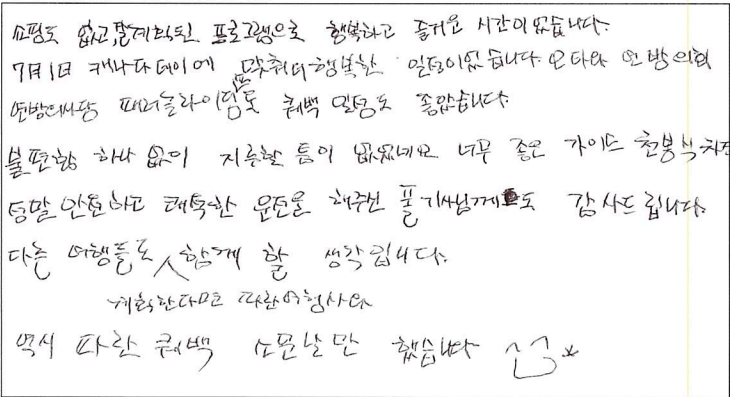 쇼핑도 없고, 잘 계획된 프로그램으로 행복하고 즐거운 시간이었습니다.
7月1日 캐나다데이에 맞춰 더 행복한 일정이었습니다. 오타와 연방의회
연방대사당 파노라마 퀘벡 일정도 좋았습니다.
불편함 하나 없이 지루할 틈이 없었네요 너무 좋은 가이드 천봉식
정말 안전하고 편숙한 운전을 해주신 폴 기사님께도 감사드립니다.
다른 여행들도 함께 할 생각입니다.
계획한다면 파란여행사와
역시 파란 퀘백 소문날만 했습니다